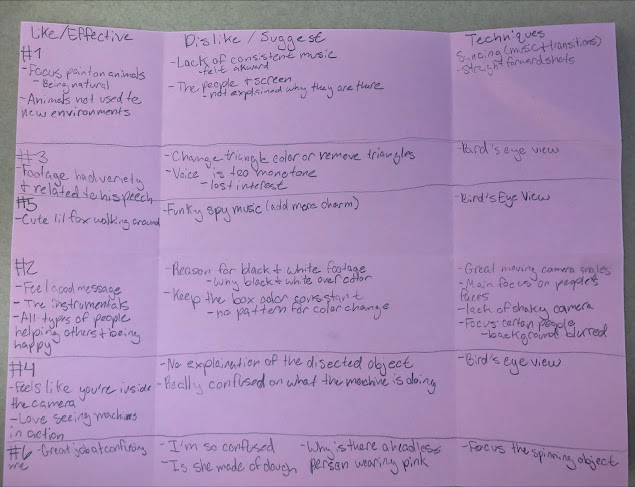 Like/Effective
Dislike/Suggest
Techniques
#1
- Focus point on animals
- Being natural
- Animals not used to
new environments
- Lack of consistent music
- felt akward
- The people + screen
- not explained why they are there
- Syncing (music + transitions)
- Straight forward shots
#3
- Footage had variety
+ related to his speech
- Change triangle color or remove triangles
- Voice is too monotone
- lost interest
- Bird's eye view
#5
- Cute lil fox walking around
- Funky spy music (add more charm)
- Bird's Eye View
#2
- Feel good message
- The instrumentals
- All types of people
helping others + being
happy
- Reason for black + white footage
- Why black + white over color
- Keep the box color constant
- no pattern for color change
- Great moving camera angles
- Main focus on people's
faces
- lack of shaky camera
- Focus certan people
- background blurred
#4
- Feels like you're inside
the camera
- Love seeing machines
in action
- No explaination of the disected object
- Really confused on what the machine is doing
- Bird's eye view
#6 - Great job at confusing
me
- I'm so confused
- Is she made of dough
- Why is there a headless
person wearing pink
- Focus the spinning object